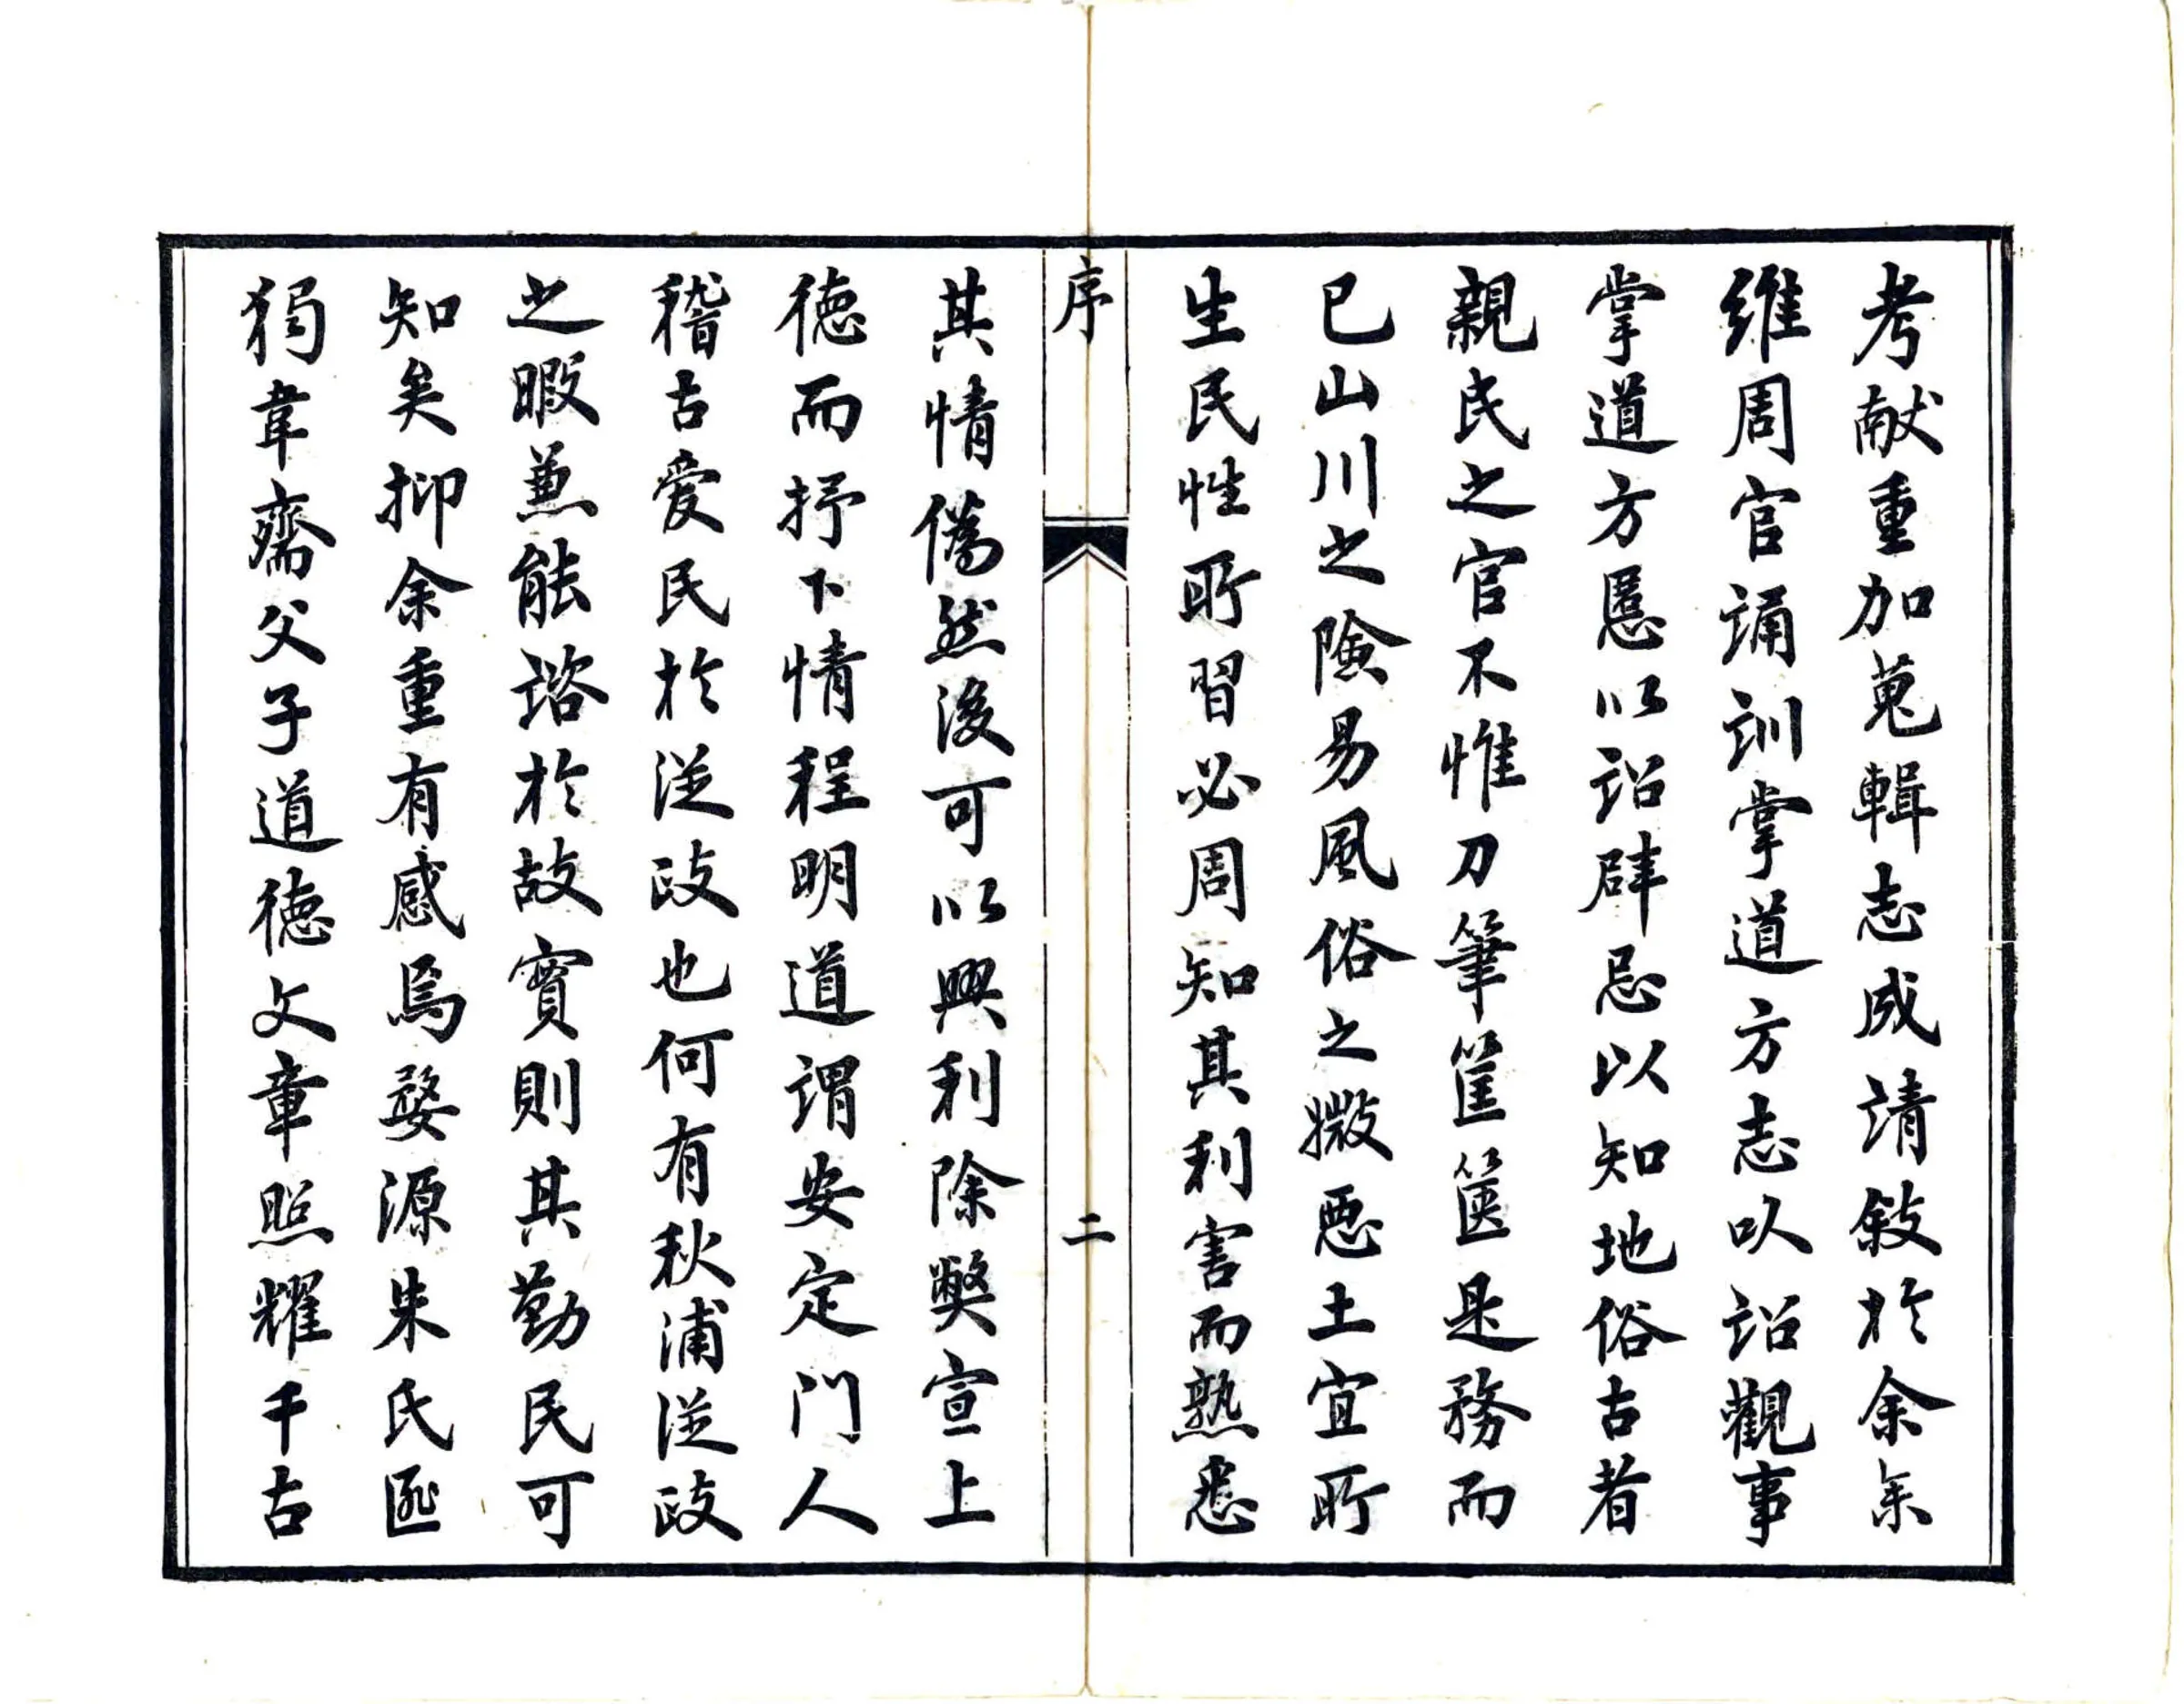 考献重加蒐輯志成請敍於余余
維周官誦訓掌道方志以詔觀事
掌道方慝以詔辟忌以知地俗古者
親民之官不惟刀筆筐篋是務而
已山川之險易風俗之媺惡土宜所
生民性所習必周知其利害而熟悉
序
二
其情偽然後可以興利除獘宣上
德而抒下情程明道謂安定門人
稽古愛民於從政也何有秋浦從政
之暇兼能諮於故實則其勤民可
知矣抑余重有感焉婺源朱氏
獨韋齋父子道德文章照耀千古